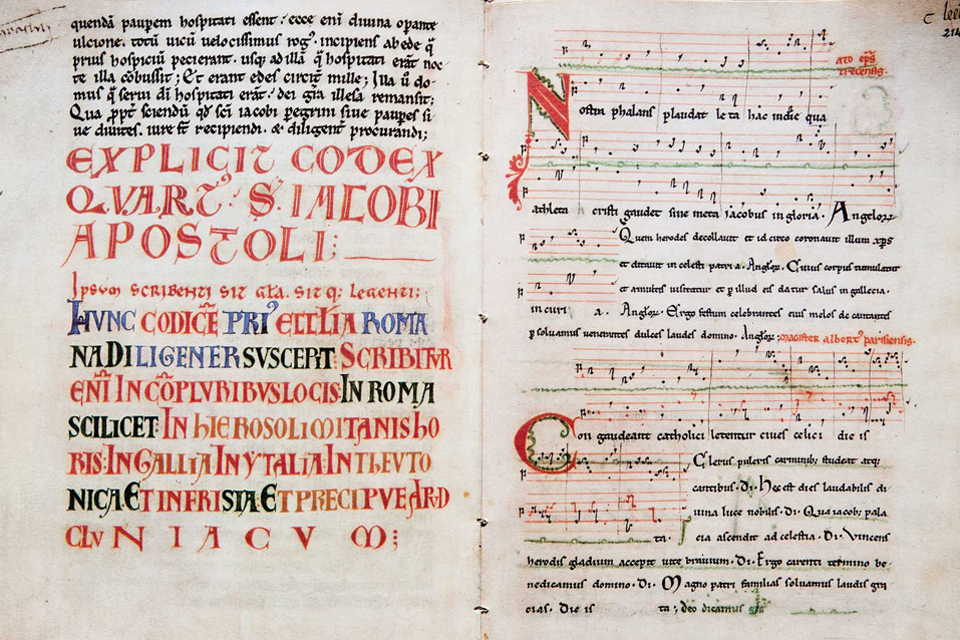 quendā paupem hospitati essent. ecce enī divina opante
ulcione. totū uicū velocissimus rogꝰ. incipiens ab ede q̄
prius hospiciū pecierant. usq; ad illā q̄ hospitati erāt noc
te illa cōbussit; Et erant edes circit̄ mille; Illa ū do
mus q̄ serui dī hospitati erāt. dei grā illesa remansit;
Qua ꝓpt̄ sciendū qđ scī iacobi peregrini siue paupes si
ue diuites. iure st̄ recipiendi. & diligent̄ procurandi;
EXPLICIT CODEX
QVARTꝰ. S. IACOBI
APOSTOLI;
Ipsum scribenti sit gła. sit q; legenti;
HVNC CODICĒ PRIꝰ ECCLIA ROMA
NA DILIGENER SUSCEPIT: SCRIBITUR
ENĪ IN CŌPLVRIBVS LOCIS. IN ROMA
SCILICET. IN HIEROSOLIMITANIS HO
RIS. IN GALLIA. IN YTALIA. IN THEVTO
NICA. ET IN FRISIA. ET PRECIPVE APVD
CLUNIACUM;
ato ep̄s
trecensis.
Nostra phalans plaudat leta hac in die qua
athleta cristi gaudet sine meta iacobus in gloria. Angelorꝝ
Quem herodes decollauit et id circo coronauit illum xp̄s
et ditauit in celesti patria. Anglorꝝ. Cuius corpus tumulatur
et a multis uisitatur et ꝑ illud eis datur salus in gallecia.
in curi a. Anglorꝝ. Ergo festum celebrantes eius melos decantantes
ꝑsoluamus venerantes dulces laudes domino. Anglorꝝ.
magister albertꝰ parisiensis.
Congaudeant catholici letentur ciues celici die is
Clerus pulcris carminib; studeat atq;
cantibus. Di. Hec est dies laudabilis di
uina luce nobilis. Di. Qua iacob; pala
ta. cia ascendit ad celestia. Di. Vincens
herodis gladium accepit uite brauium. Di. Ergo carenti termino be
nedicamus domino. Di. Magno patri familias soluamus laudis gra
cias. Die is ta; deo dicamus